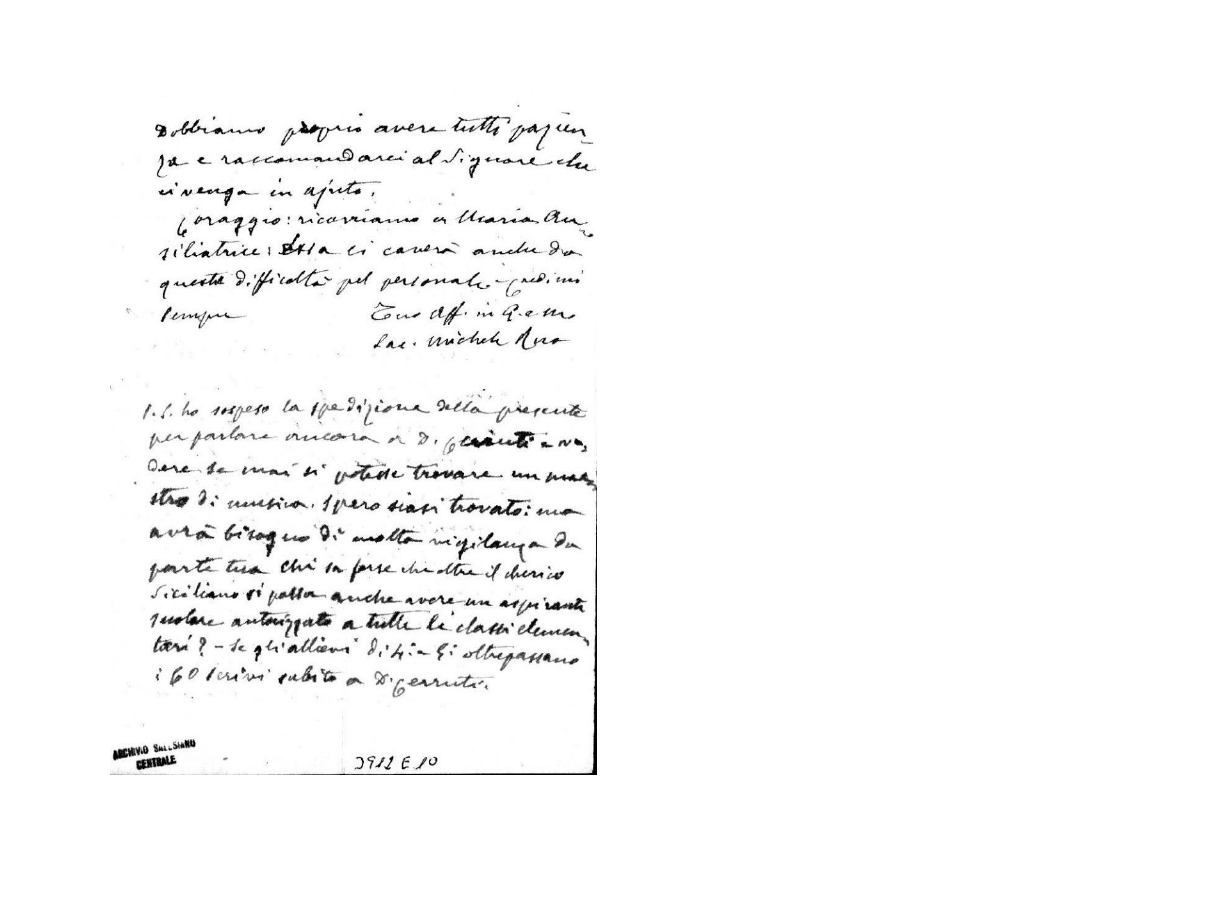 Dobbiamo proprio avere tutti pazien-
za e raccomandarci al Signore che
ci venga in ajuto.
Coraggio: ricorriamo a Maria Au-
siliatrice: Essa ci caverà anche da
queste difficoltà pel personale. Credimi
sempre
Tuo aff. in G. e M.
Sac. Michele Rua
P.S. ho sospeso la spedizione della presente
per parlare ancora a D. Cerruti e ve-
dere se mai si potesse trovare un mae-
stro di musica. Spero siasi trovato: ma
avrà bisogno di molta vigilanza da
parte tua chi sa forse che oltre il cherico
Siciliano si possa anche avere un aspirante
scolare autorizzato a tutte le classi elemen-
tari? - Se gli allievi di 4.a e 5.a oltrepassano
i 60 scrivi subito a D. Cerruti.
ARCHIVIO SALESIANO
CENTRALE
3912 E 10